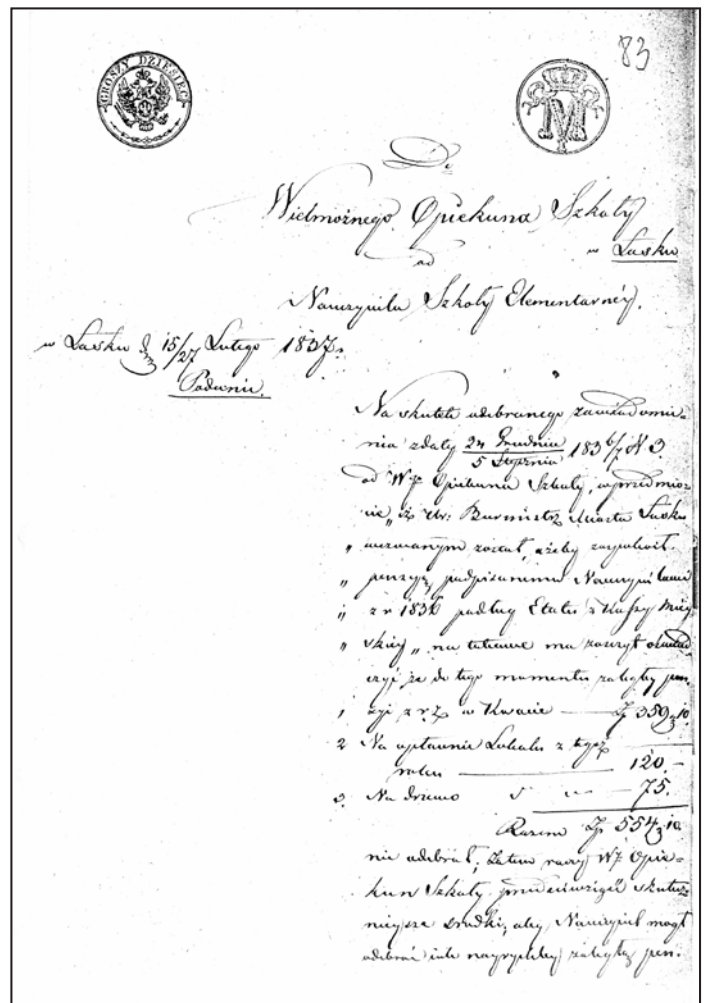 83
GROSZY DZIESIĘĆ
Do
Wielmożnego Opiekuna Szkoły
w Łasku
od
Nauczyciela Szkoły Elementarnéy.
w Łasku d. 15/27 Lutego 1837 r.
Podanie.
Na skutek odebranego zawiadomie-
nia z daty 24 Grudnia / 5 Stycznia 1836/7 N 3.
od WJP Opiekuna Szkoły, w przedmio-
cie „iż Ur: Burmistrz Miasta Łasku
„ wezwanym został, ażeby zaspokoił
„ pensyą podpisanemu Nauczycielowi
„ z r 1836 podług Etatu z Kassy Miey
„ skiéy „ na takowe ma zaszczyt oświad-
czyć że do tego momentu zaległéy pen-
1 syi z r. z. w Kwocie — Zł 359 g 10.
2 Na opłacenie Lokalu z tegoż
roku — 120.-
3. Na drzewo — 75.
Razem Zł 554 g 10.
nie odebrał; Zatem raczy WJP Opie-
kun Szkoły przedsięwziąść skutecz-
nieysze srodki, aby Nauczyciel mógł
odebrać iak nayrychléy zaległą pen-